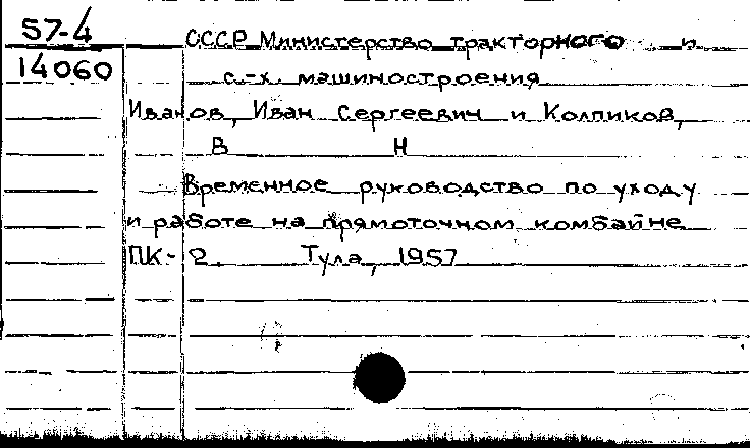 57-4
14060
СССР Министерство тракторного и
с.-х. машиностроения
Иванов, Иван Сергеевич и Колпиков,
В Н
Временное руководство по уходу
и работе на прямоточном комбайне
ПК-2. Тула, 1957